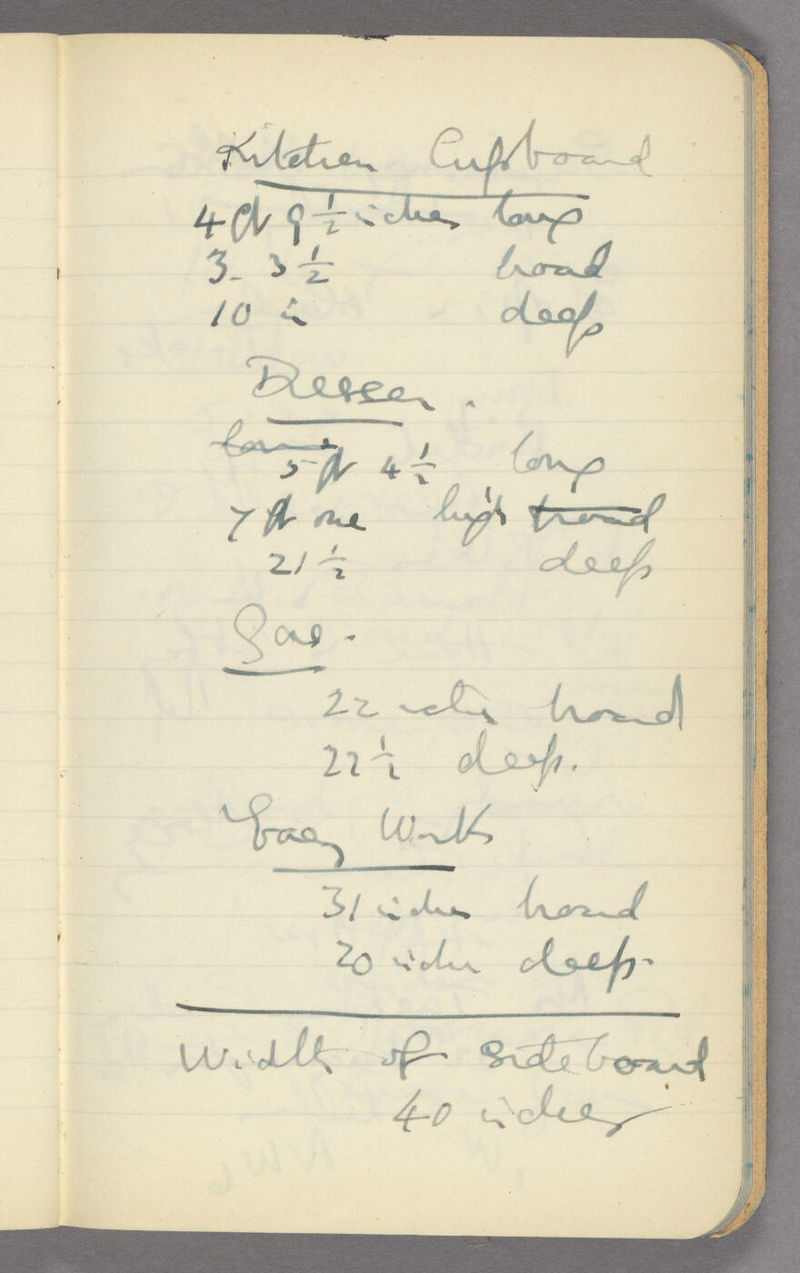 Kitchen Cupboard
4 ft 9 ½ inches long
3. 3 ½ broad
10 in deep
Dresser.
long
5 ft 4 ½ long
7 ft one high broad
21 ½ deep
Gas.
22 inches broad
22 ½ deep.
Easy Work
31 inches broad
20 inches deep.
Width of sideboard
40 inches